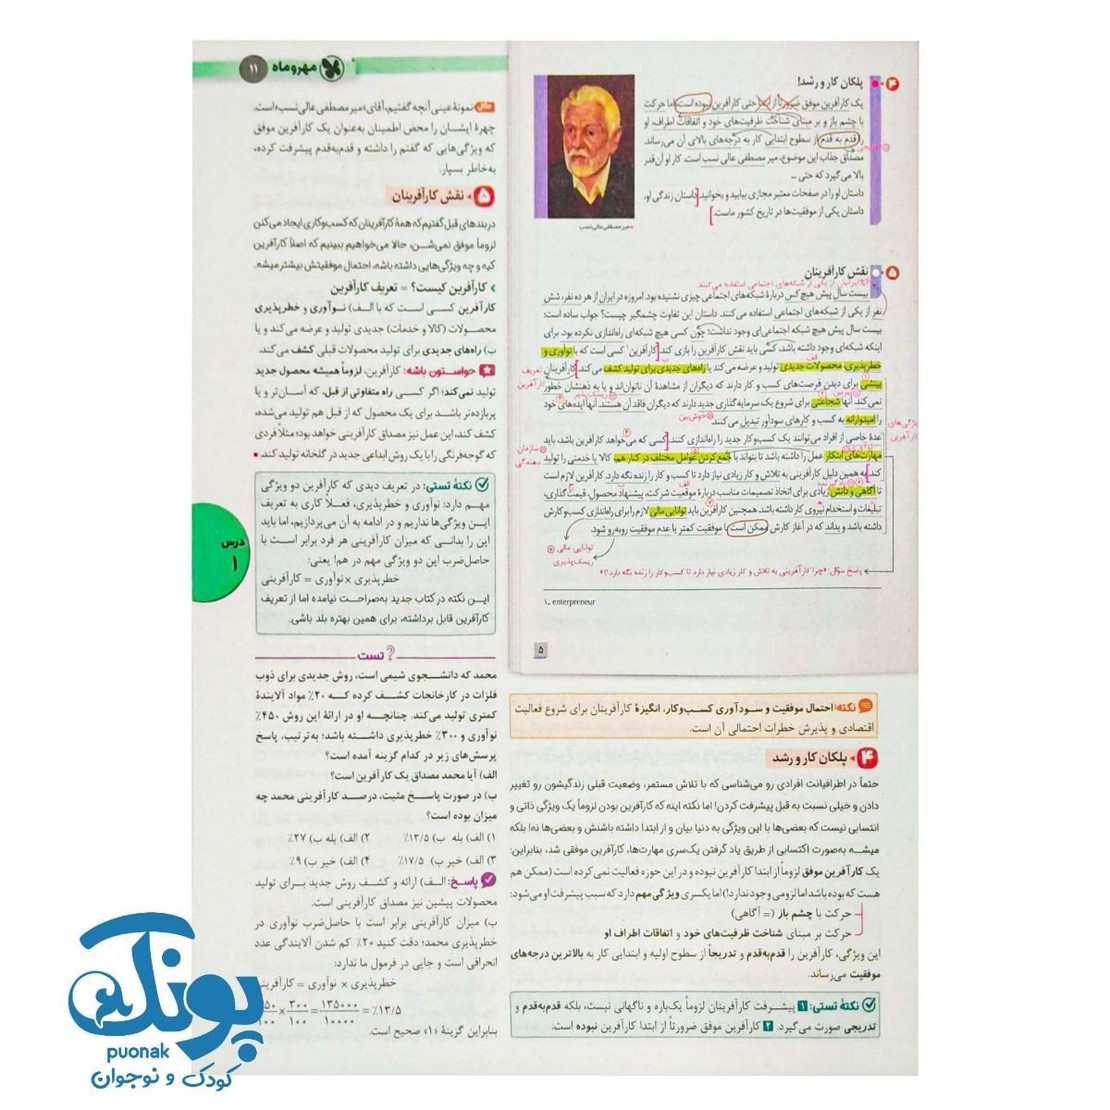 مهروماه
۱۱
۴ پلکان کار و رشد!
یک کارآفرین موفق ضرورتاً از ابتدا حتی کارآفرین نبوده است، اما حرکت
با چشم باز و بر مبنای شناخت ظرفیت‌های خود و اتفاقات اطراف، او
را قدم به قدم از سطوح ابتدایی کار به درجه‌های بالای آن می‌رساند.
مصداق جذاب این موضوع، میر مصطفی عالی نسب است. کار او آن‌قدر
بالا می‌گیرد که حتی ...
داستان او را در صفحات معتبر مجازی بیابید و بخوانید. داستان زندگی او،
داستان یکی از موفقیت‌ها در تاریخ کشور ماست.
میر مصطفی عالی‌نسب
۵ نقش کارآفرینان
بیست سال پیش هیچ کس دربارهٔ شبکه‌های اجتماعی چیزی نشنیده بود. امروزه در ایران از هر ده نفر، شش
نفر از یکی از شبکه‌های اجتماعی استفاده می‌کنند. داستان این تفاوت چشمگیر چیست؟ جواب ساده است:
بیست سال پیش هیچ شبکه اجتماعی‌ای وجود نداشت؛ چون کسی هیچ شبکه‌ای راه‌اندازی نکرده بود. برای
اینکه شبکه‌ای وجود داشته باشد، کسی باید نقش کارآفرین را بازی کند. کارآفرین۱ کسی است که با نوآوری و
خطرپذیری، محصولات جدیدی تولید و عرضه می‌کند یا راه‌های جدیدی برای تولید کشف می‌کند. کارآفرینان
بینشی برای دیدن فرصت‌های کسب و کار دارند که دیگران از مشاهدهٔ آن ناتوان‌اند و یا به ذهنشان خطور
نمی‌کند. آنها شجاعتی برای شروع یک سرمایه‌گذاری جدید دارند که دیگران فاقد آن هستند. آنها ایده‌های خود
را امیدوارانه به کسب و کارهای سودآور تبدیل می‌کنند.
خوش‌بین
عدهٔ خاصی از افراد می‌توانند یک کسب‌وکار جدید را راه‌اندازی کنند. کسی که می‌خواهد کارآفرین باشد، باید
مهارت‌های ابتکار عمل را داشته باشد تا بتواند با جمع‌کردن عوامل مختلف در کنار هم، کالا یا خدمتی را تولید
کند. به همین دلیل کارآفرینی به تلاش و کار زیادی نیاز دارد تا کسب و کار را زنده نگه دارد. کارآفرین لازم است
تا آگاهی و دانش زیادی برای اتخاذ تصمیمات مناسب دربارهٔ موقعیت شرکت، پیشنهاد محصول، قیمت‌گذاری،
تبلیغات و استخدام نیروی کار داشته باشد. همچنین کارآفرین باید توانایی مالی لازم را برای راه‌اندازی کسب‌وکارش
داشته باشد و بداند که در آغاز کارش ممکن است با موفقیت کمتر یا عدم موفقیت روبه‌رو شود.
توانایی مالی
ریسک‌پذیری
پاسخ سؤال: «چرا کارآفرینی به تلاش و کار زیادی نیاز دارد تا کسب‌وکار را زنده نگه دارد؟»
۱. enterpreneur
۵
نکته: احتمال موفقیت و سودآوری کسب‌وکار، انگیزهٔ کارآفرینان برای شروع فعالیت
اقتصادی و پذیرش خطرات احتمالی آن است.
۴ پلکان کار و رشد
حتماً در اطرافیانت افرادی رو می‌شناسی که با تلاش مستمر، وضعیت قبلی زندگیشون رو تغییر
دادن و خیلی نسبت به قبل پیشرفت کردن! اما نکته اینه که کارآفرین بودن لزوماً یک ویژگی ذاتی و
انتسابی نیست که بعضی‌ها با این ویژگی به دنیا بیان و از ابتدا داشته باشنش و بعضی‌ها نه! بلکه
میشه به‌صورت اکتسابی از طریق یاد گرفتن یک‌سری مهارت‌ها، کارآفرین موفقی شد، بنابراین:
یک کارآفرین موفق لزوماً از ابتدا کارآفرین نبوده و در این حوزه فعالیت نمی‌کرده است (ممکن هم
هست که بوده باشد اما لزومی وجود ندارد!) اما یکسری ویژگی مهم دارد که سبب پیشرفت او می‌شود:
حرکت با چشم باز (= آگاهی)
حرکت بر مبنای شناخت ظرفیت‌های خود و اتفاقات اطراف او
این ویژگی، کارآفرین را قدم‌به‌قدم و تدریجاً از سطوح اولیه و ابتدایی کار به بالاترین درجه‌های
موفقیت می‌رساند.
نکتهٔ تستی: ۱ پیشرفت کارآفرینان لزوماً یک‌باره و ناگهانی نیست، بلکه قدم‌به‌قدم و
تدریجی صورت می‌گیرد. ۲ کارآفرین موفق ضرورتاً از ابتدا کارآفرین نبوده است.
مثال نمونهٔ عینی آنچه گفتیم، آقای «میر مصطفی عالی نسب» است.
چهرهٔ ایشان را محض اطمینان به‌عنوان یک کارآفرین موفق
که ویژگی‌هایی که گفتم را داشته و قدم‌به‌قدم پیشرفت کرده،
به‌خاطر بسپار.
۵ نقش کارآفرینان
در بندهای قبل گفتیم که همهٔ کارآفرینان که کسب‌وکاری ایجاد می‌کنن
لزوماً موفق نمی‌شن، حالا می‌خواهیم ببینیم که اصلاً کارآفرین
کیه و چه ویژگی‌هایی داشته باشه، احتمال موفقیتش بیشتر میشه.
کارآفرین کیست؟ = تعریف کارآفرین
کارآفرین کسی است که با الف) نوآوری و خطرپذیری
محصولات (کالا و خدمات) جدیدی تولید و عرضه می‌کند و یا
ب) راه‌های جدیدی برای تولید محصولات قبلی کشف می‌کند.
حواستون باشه: کارآفرین، لزوماً همیشه محصول جدید
تولید نمی‌کند؛ اگر کسی راه متفاوتی از قبل، که آسان‌تر و یا
پربازده‌تر باشد، برای یک محصول که از قبل هم تولید می‌شده،
کشف کند، این عمل نیز مصداق کارآفرینی خواهد بود؛ مثلاً فردی
که گوجه‌فرنگی را با یک روش ابداعی جدید در گلخانه تولید کند.
نکتهٔ تستی: در تعریف دیدی که کارآفرین دو ویژگی
مهم دارد: نوآوری و خطرپذیری، فعلاً کاری به تعریف
این ویژگی‌ها نداریم و در ادامه به آن می‌پردازیم، اما باید
این را بدانی که میزان کارآفرینی هر فرد برابر است با
حاصل‌ضرب این دو ویژگی مهم در هم! یعنی:
خطرپذیری × نوآوری = کارآفرینی
این نکته در کتاب جدید به‌صراحت نیامده اما از تعریف
کارآفرین قابل برداشته، برای همین بهتره بلد باشی.
درس
۱
تست
محمد که دانشجوی شیمی است، روش جدیدی برای ذوب
فلزات در کارخانجات کشف کرده که ۲۰٪ مواد آلایندهٔ
کمتری تولید می‌کند. چنانچه او در ارائهٔ این روش ۴۵۰٪
نوآوری و ۳۰۰٪ خطرپذیری داشته باشد؛ به‌ترتیب، پاسخ
پرسش‌های زیر در کدام گزینه آمده است؟
الف) آیا محمد مصداق یک کارآفرین است؟
ب) در صورت پاسخ مثبت، درصد کارآفرینی محمد چه
میزان بوده است؟
۱) الف) بله ب) ۱۳/۵٪ ۲) الف) بله ب) ۲۷٪
۳) الف) خیر ب) ۱۷/۵٪ ۴) الف) خیر ب) ۹٪
پاسخ: الف) ارائه و کشف روش جدید برای تولید
محصولات پیشین نیز مصداق کارآفرینی است.
ب) میزان کارآفرینی برابر است با حاصل‌ضرب نوآوری در
خطرپذیری محمد؛ دقت کنید ۲۰٪ کم شدن آلایندگی عدد
انحرافی است و جایی در فرمول ما ندارد:
خطرپذیری × نوآوری = کارآفرینی
× ۳۰۰/۱۰۰ = ۱۳۵۰۰۰/۱۰۰۰۰ = ۱۳/۵٪
بنابراین گزینهٔ «۱» صحیح است.
پونک
puonak
کودک و نوجوان